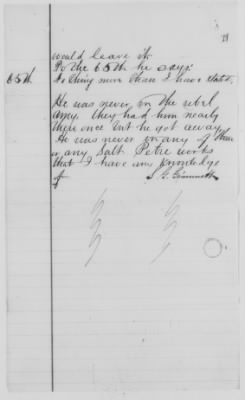 would leave it.
To the 65th he says:
65th. Nothing more than I have stated.
He was never in the rebel
army. they had him nearly
there once but he got away
He was never in any of
or any Salt Petre works
that I have any knowledge
of